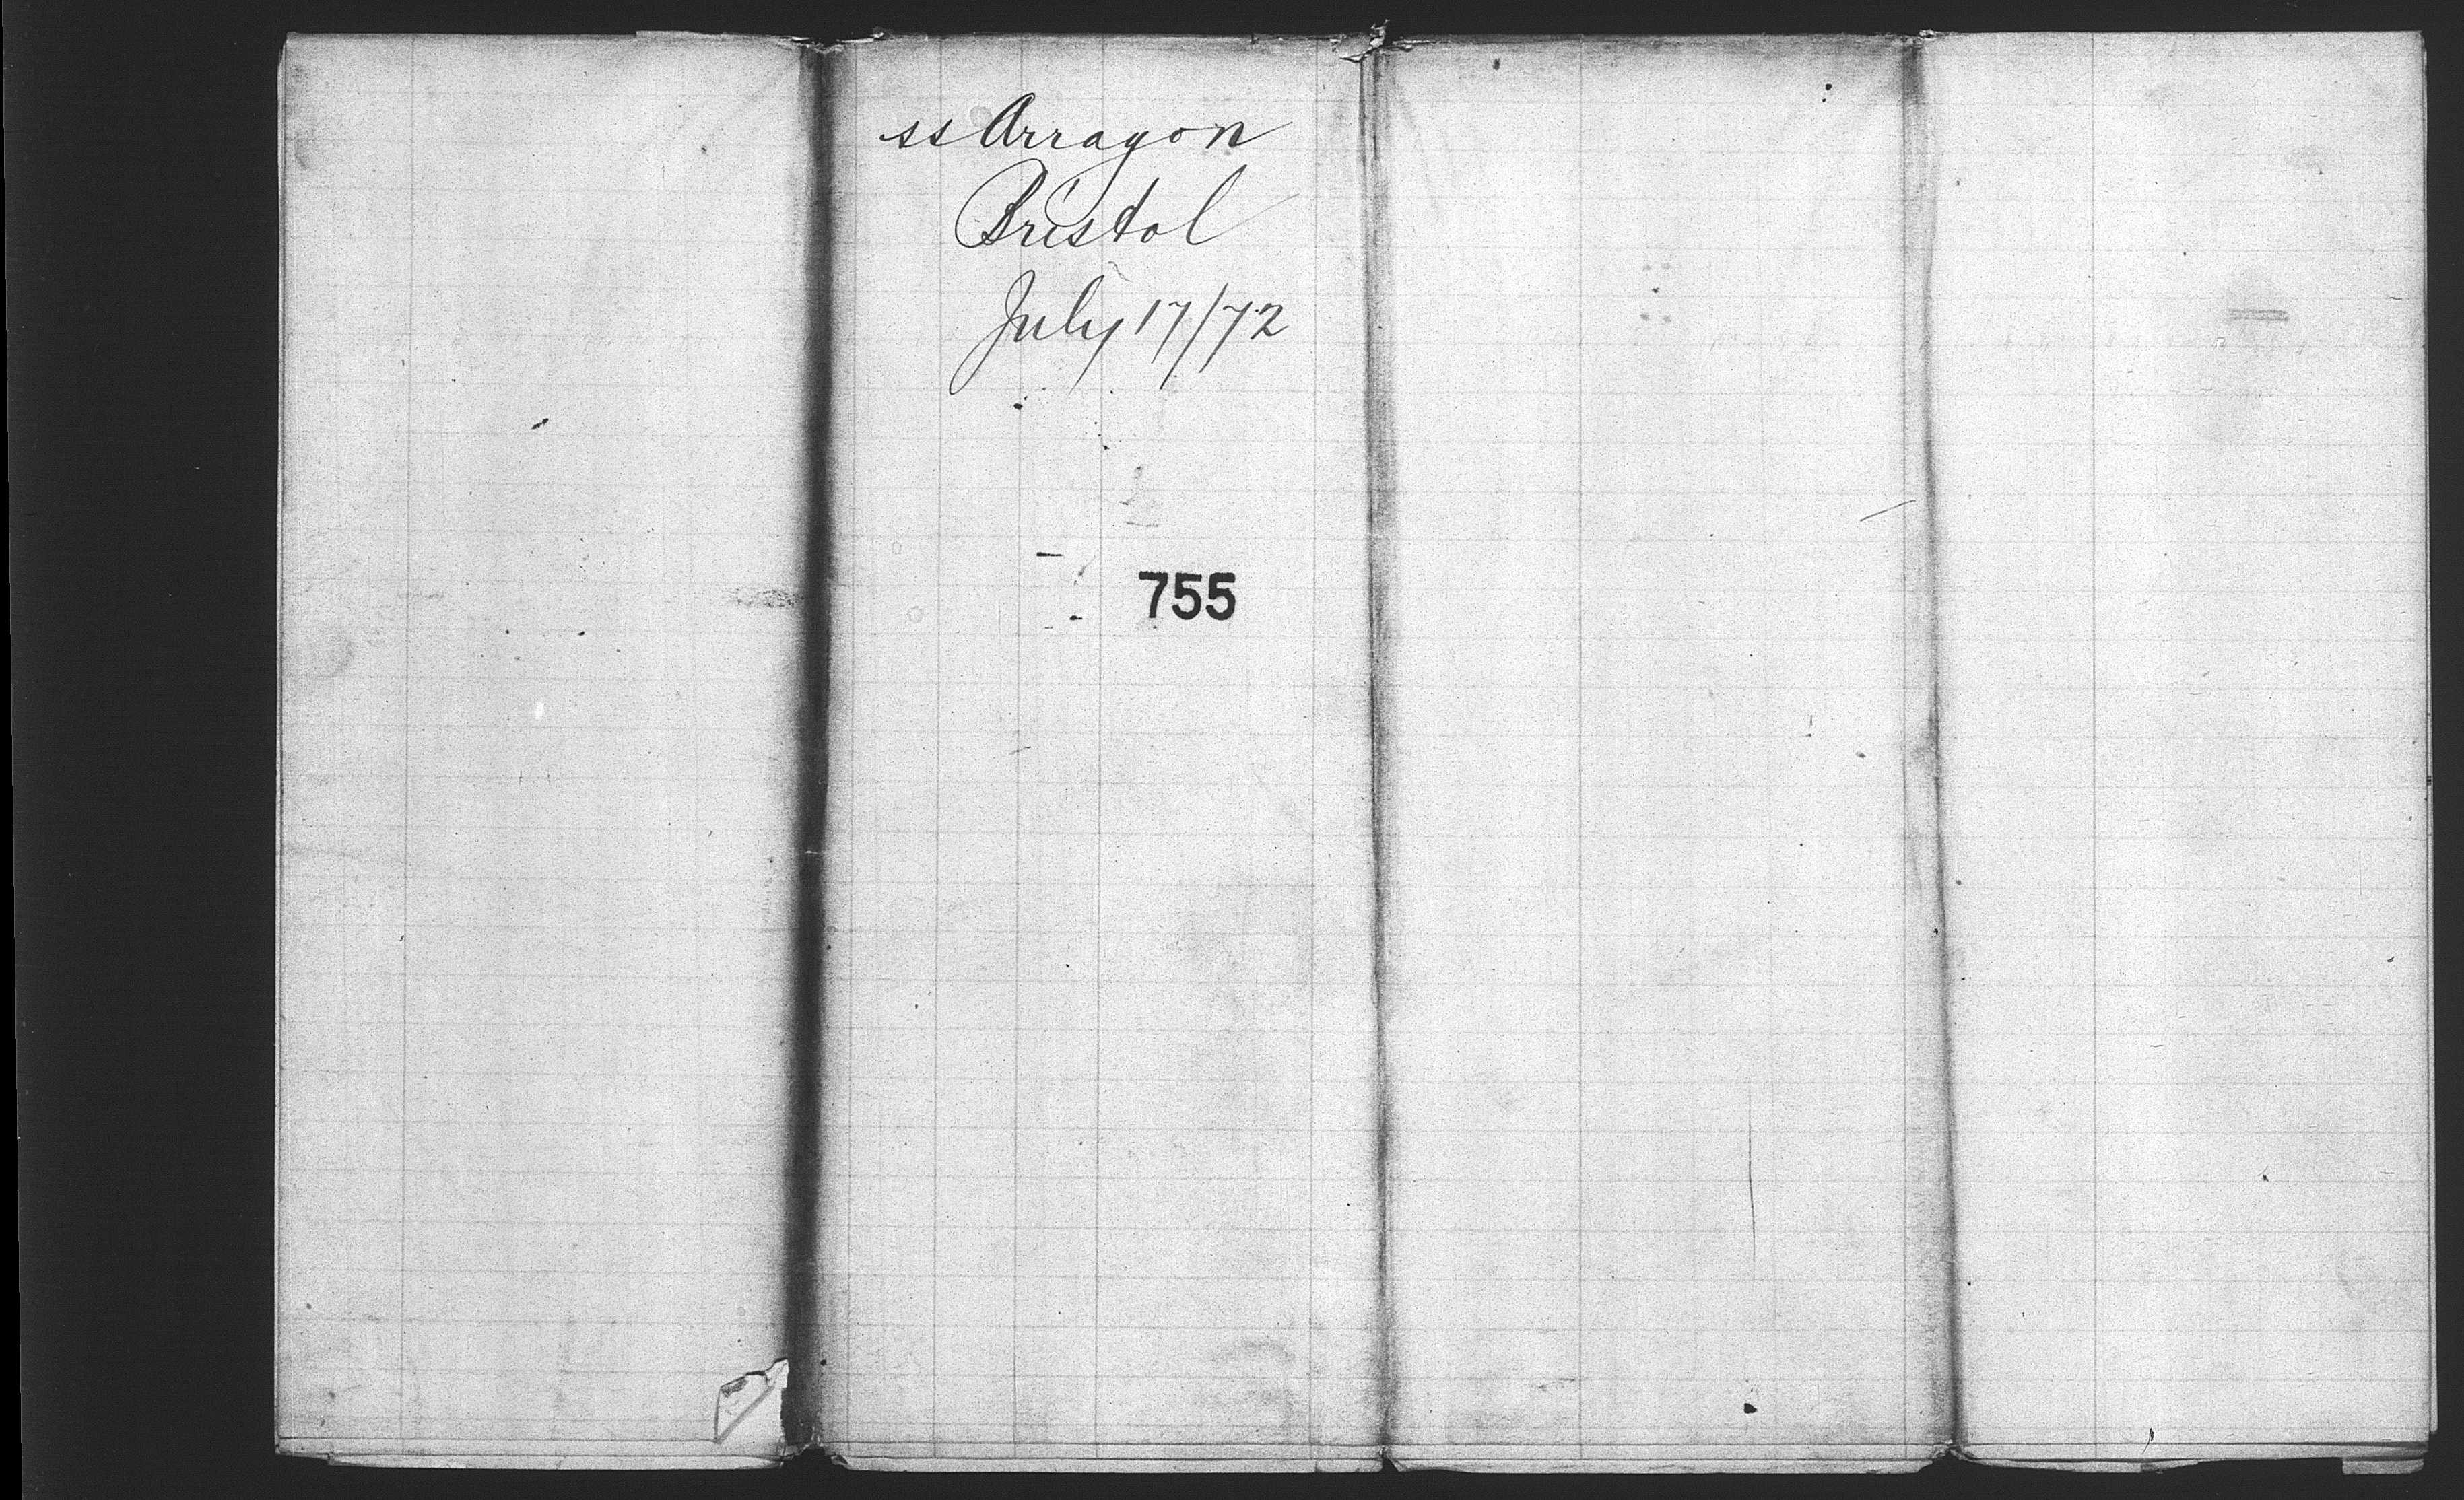 ss Arragon
Bristol
July 17/72
755